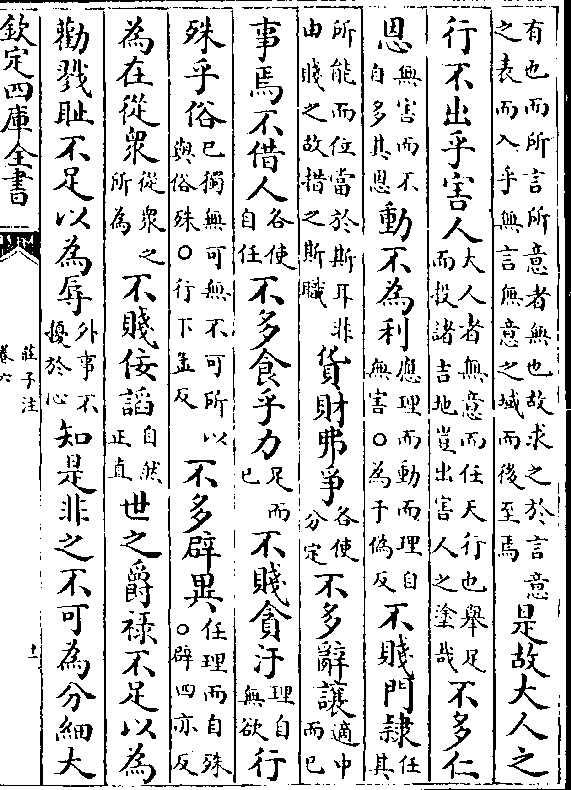 有也而所言所意者無也故求之於言意之表而入乎無言無意之域而後至焉是故大人之
行不出乎害人大人者無意而任天行也舉足而投諸吉地豈出害人之塗哉不多仁
恩無害而不自多其恩動不為利應理而動而理自無害○為于偽反不賤門隸任其
所能而位當於斯耳非由賤之故措之斯職貨財弗爭各使分定不多辭讓適中而已
事焉不借人各使自任不多食乎力足而已不賤貪汙理自無欲行
殊乎俗已獨無可無不可所以與俗殊○行下孟反不多辟異任理而自殊○辟四亦反
為在從衆從衆之所為不賤佞諂自然正直世之爵祿不足以為
勸戮耻不足以為辱外事不擾於心知是非之不可為分細大
欽定四庫全書
莊子注
卷六